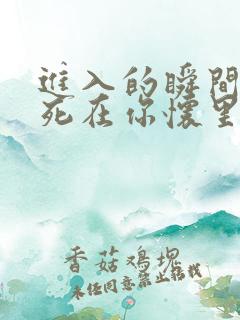 進入的瞬間
死在你懷里
香菇鸡塊
未经同意禁止转载